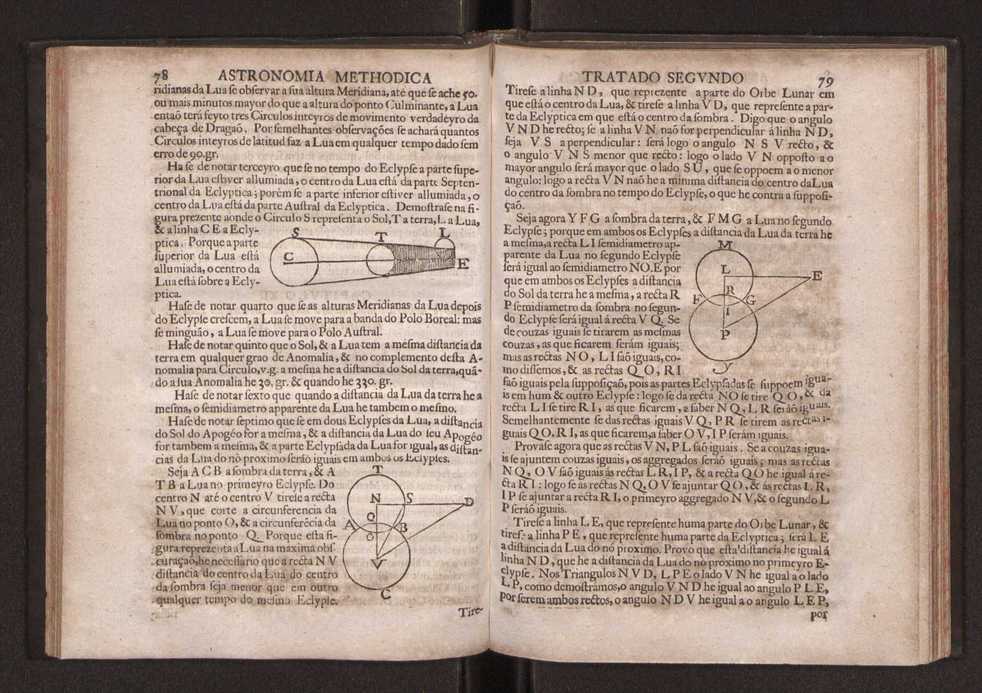 78 ASTRONOMIA METHODICA
ridianas da Lua se observar a sua altura Meridiana, até que se ache 50.
ou mais minutos mayor do que a altura do ponto Culminante, a Lua
entaõ terá feyto tres Circulos inteyros de movimento verdadeyro da
cabeça de Dragaõ. Por semelhantes observações se achará quantos
Circulos inteyros de latitud faz a Lua em qualquer tempo dado sem
erro de 90.gr.
Ha se de notar terceyro que se no tempo do Eclypse a parte supe-
rior da Lua estiver allumiada, o centro da Lua está da parte Septen-
trional da Eclyptica; porèm se a parte inferior estiver allumiada, o
centro da Lua está da parte Austral da Eclyptica. Demostrase na fi-
gura prezente aonde o Circulo S representa o Sol, T a terra, L a Lua,
& a linha C E a Ecly-
ptica. Porque a parte
superior da Lua está
allumiada, o centro da
Lua está sobre a Ecly-
ptica.
S T L
C E
Hase de notar quarto que se as alturas Meridianas da Lua depois
do Eclypse crescem, a Lua se move para a banda do Polo Boreal: mas
se minguão, a Lua se move para o Polo Austral.
Hase de notar quinto que o Sol, & a Lua tem a mesma distancia da
terra em qualquer grao de Anomalia, & no complemento desta A-
nomalia para Circulo, v.g. a mesma he a distancia do Sol da terra, quã-
do a sua Anomalia he 30. gr. & quando he 330. gr.
Hase de notar sexto que quando a distancia da Lua da terra he a
mesma, o semidiametro apparente da Lua he tambem o mesmo.
Hase de notar septimo que se em dous Eclypses da Lua, a distancia
do Sol do Apogéo for a mesma, & a distancia da Lua do seu Apogéo
for tambem a mesma, & a parte Eclypsada da Lua for igual, as distan-
cias da Lua do nò proximo serão iguais em ambos os Eclypses.
Seja A C B a sombra da terra, & A
T B a Lua no primeyro Eclypse. Do
centro N até o centro V tirese a recta
N V, que corte a circunferencia da
Lua no ponto O, & a circunferẽcia da
sombra no ponto Q. Porque esta fi-
gura reprezenta a Lua na maxima obs-
curaçaõ, he necessario que a recta N V
distancia do centro da Lua do centro
da sombra seja menor que em outro
qualquer tempo do mesmo Eclypse.
T
N S D
Q
A B
O
V
C
Tire-
TRATADO SEGVNDO 79
Tirese a linha N D, que reprezente a parte do Orbe Lunar em
que está o centro da Lua, & tirese a linha V D, que represente a par-
te da Eclyptica em que está o centro da sombra. Digo que o angulo
V N D he recto; se a linha V N naõ for perpendicular á linha N D,
seja V S a perpendicular: será logo o angulo N S V recto, &
o angulo V N S menor que recto: logo o lado V N opposto a o
mayor angulo será mayor que o lado S U, que se oppoem a o menor
angulo: logo a recta V N naõ he a minima distancia do centro da Lua
do centro da sombra no tempo do Eclypse, o que he contra a supposi-
çaõ.
Seja agora Y F G a sombra da terra, & F M G a Lua no segundo
Eclypse; porque em ambos os Eclypses a distancia da Lua da terra he
a mesma, a recta L I semidiametro ap-
parente da Lua no segundo Eclypse
será igual ao semidiametro NO. E por
que em ambos os Eclypses a distancia
do Sol da terra he a mesma, a recta R
P semidiametro da sombra no segun-
do Eclypse será igual á recta V Q. Se
de couzas iguais se tirarem as mesmas
couzas, as que ficarem seràm iguais;
mas as rectas N O, L I saõ iguais, co-
mo dissemos, & as rectas Q O, R I
M
L E
R
F G
I
P
Y
saõ iguais pela supposiçaõ, pois as partes Eclypsadas se suppoem igua-
is em hum & outro Eclypse: logo se da recta NO se tire Q O, & da
recta L I se tire R I, as que ficarem, a saber N Q, L R seráõ iguais.
Semelhantemente se das rectas iguais V Q, P R se tirem as rectas i-
guais Q O, R I, as que ficarem, a saber O V, I P seràm iguais.
Provase agora que as rectas V N, P L saõ iguais. Se a couzas igua-
is se ajuntem couzas iguais, os aggregados seraõ iguais; mas as rectas
N Q, O V saõ iguais ás rectas L R, I P, & a recta Q O he igual á re-
cta R I: logo se ás rectas N Q, O V se ajuntar Q O, & ás rectas L R,
I P se ajuntar a recta R I, o primeyro aggregado N V, & o segundo L
P seraõ iguais.
Tirese a linha L E, que represente huma parte do Orbe Lunar, &
tirese a linha P E, que represente huma parte da Eclyptica; será L E
a distancia da Lua do nò proximo. Provo que esta distancia he igual á
linha N D, que he a distancia da Lua do nò proximo no primeyro E-
clypse. Nos Triangulos N V D, L P E o lado V N he igual a o lado
L P, como demostràmos, o angulo V N D he igual ao angulo P L E,
por serem ambos rectos, o angulo N D V he igual a o angulo L E P,
por